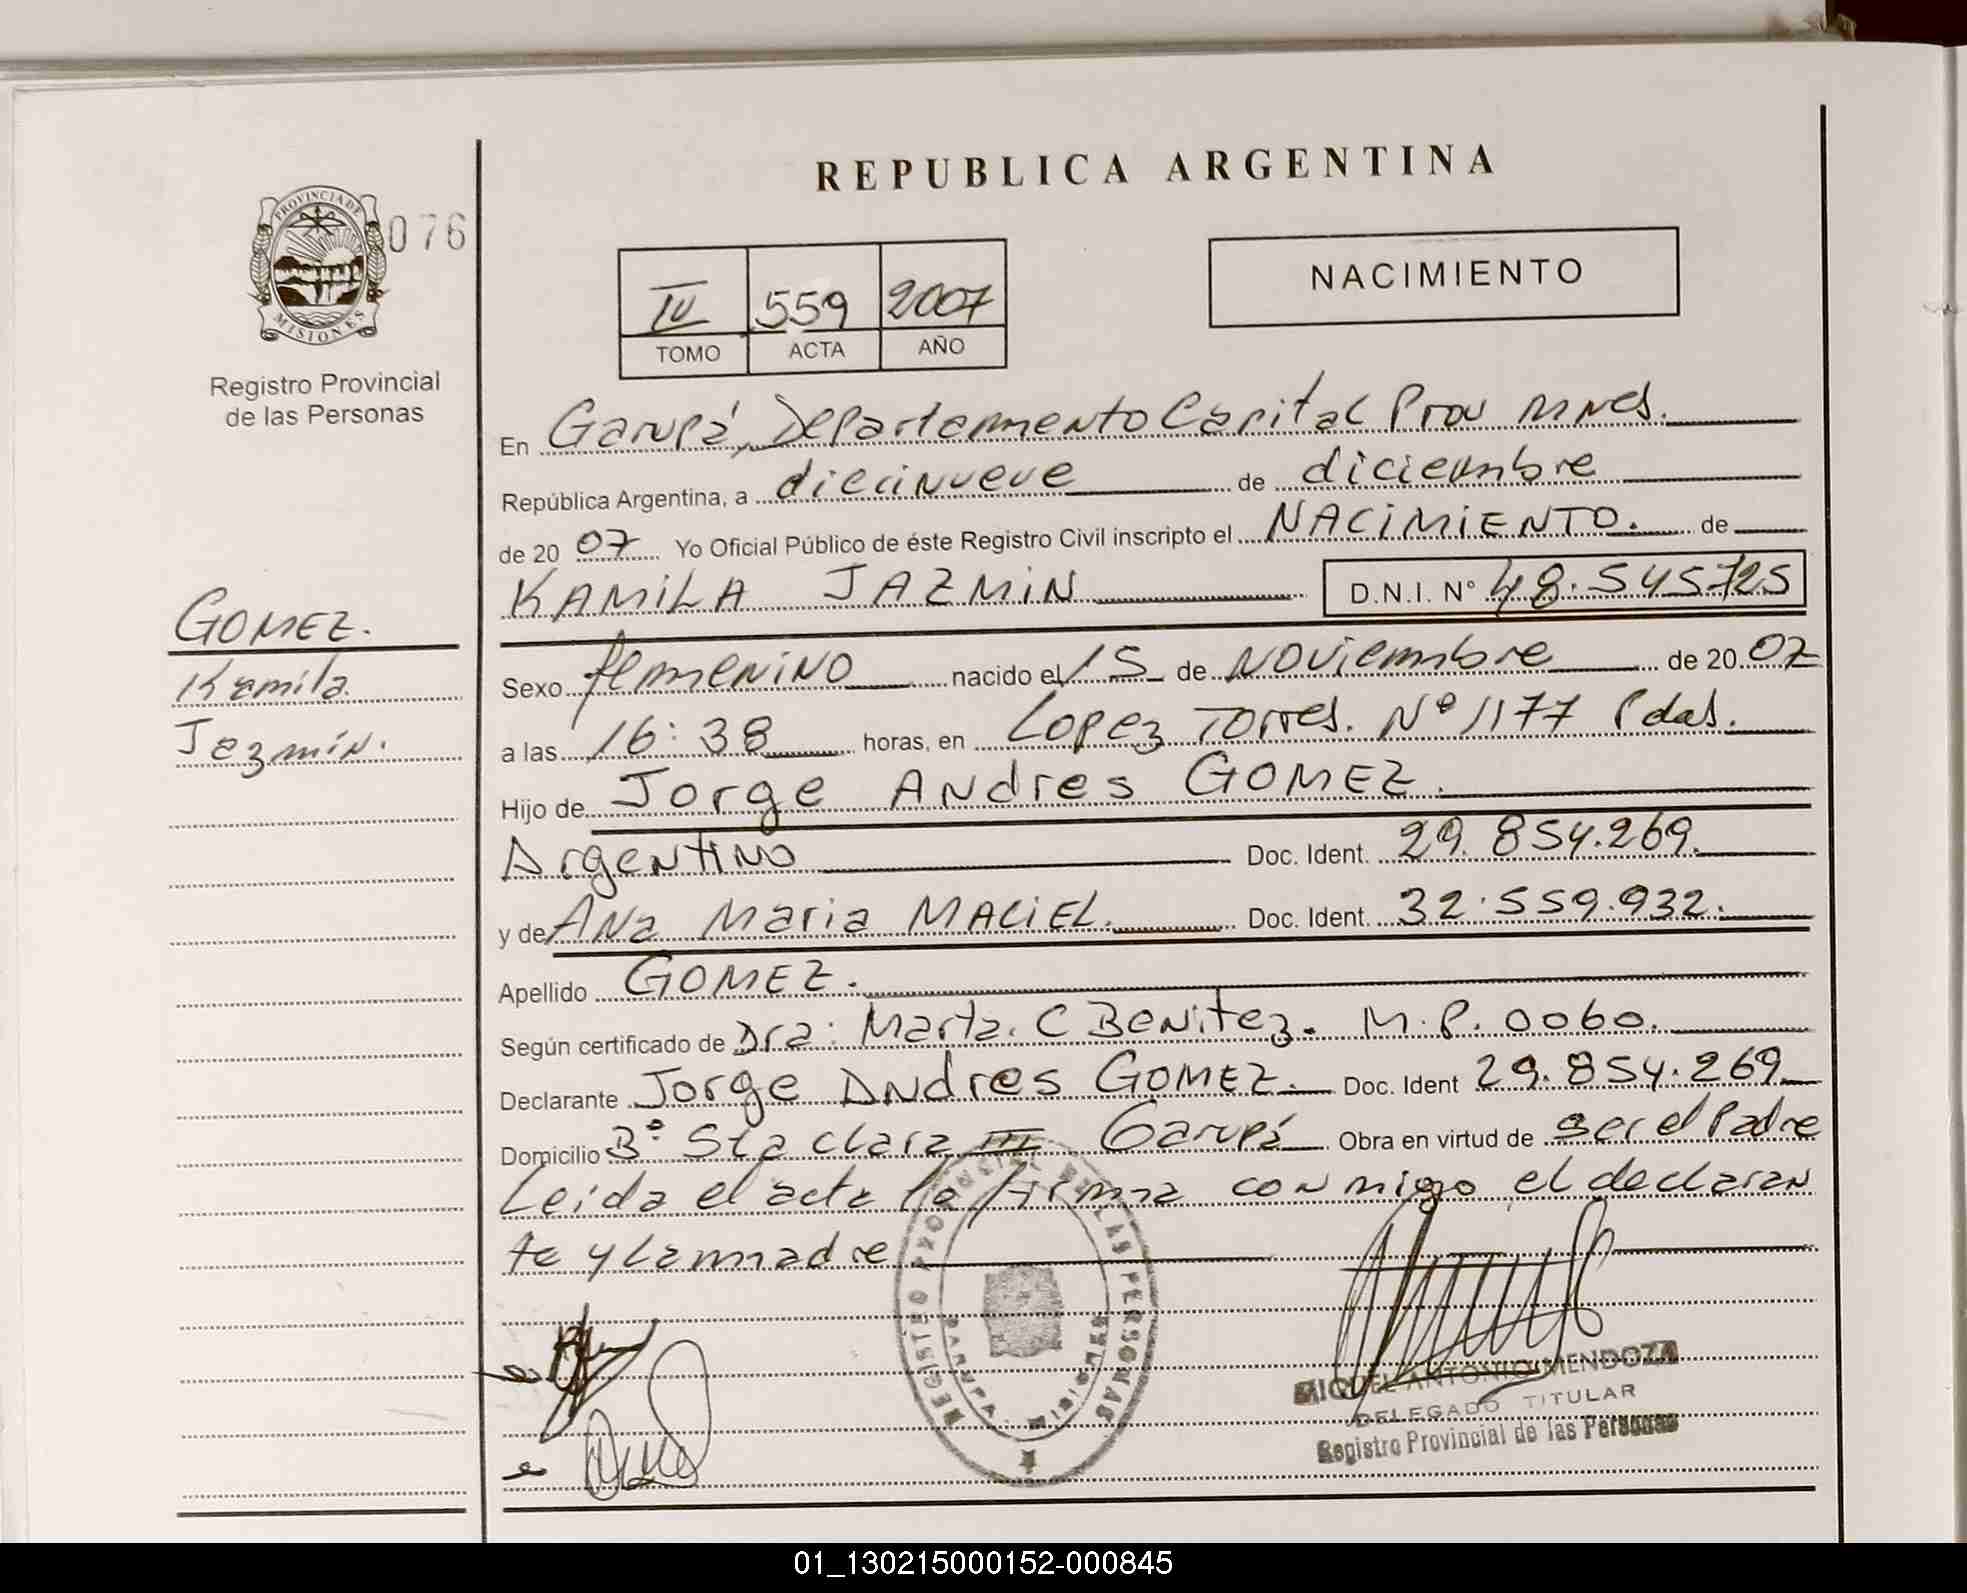 REPUBLICA ARGENTINA
PROVINCIA DE
MISIONES
076
Registro Provincial
de las Personas
IV 559 2007
TOMO ACTA AÑO
NACIMIENTO
En Garupá, Departamento Capital Prov Mnes.
República Argentina, a diecinueve de diciembre
de 20 07 Yo Oficial Público de éste Registro Civil inscripto el NACIMIENTO. de
KAMILA JAZMIN D.N.I. N° 48.545.725
GOMEZ.
Kamila
Jazmín.
Sexo femenino nacido el 15 de Noviembre de 20 07
a las 16:38 horas, en Lopez Torres. Nº 1177 Pdas.
Hijo de Jorge Andres GOMEZ.
Argentino Doc. Ident. 29.854.269.
y de Ana Maria MACIEL. Doc. Ident. 32.559.932.
Apellido GOMEZ.
Según certificado de Dra: Marta. C Benitez. M.P. 0060.
Declarante Jorge Andres GOMEZ. Doc. Ident 29.854.269
Domicilio Bº Sta Clara III Garupá Obra en virtud de ser el Padre
Leida el acta la firma conmigo el declaran
te y la madre
REGISTRO PROVINCIAL DE LAS PERSONAS
GARUPA MISIONES
MIGUEL ANTONIO MENDOZA
DELEGADO TITULAR
Registro Provincial de las Personas
01_130215000152-000845